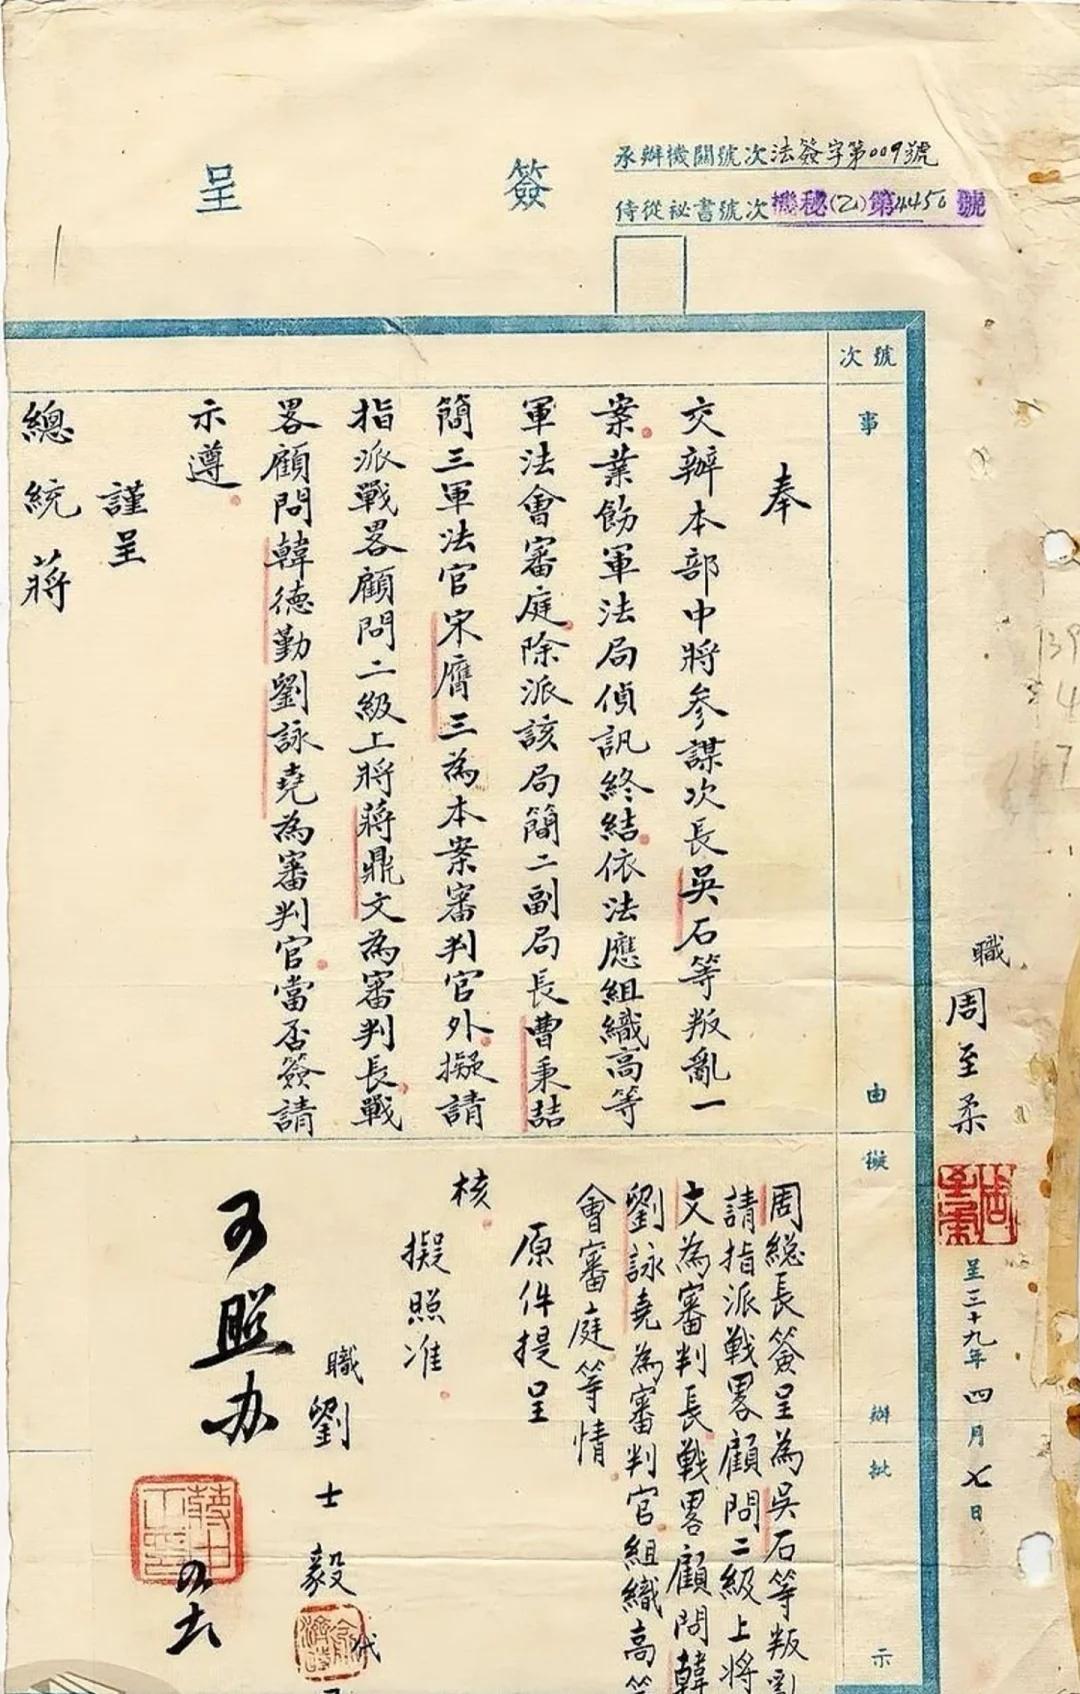 簽呈
承辦機關號次法簽字第009號
侍從祕書號次機秘(乙)第4450號
號次
事由
擬辦
批示
奉
交辦本部中將參謀次長吳石等叛亂一
案業飭軍法局偵訊終結依法應組織高等
軍法會審庭除派該局簡二副局長曹秉喆
簡三軍法官宋膺三為本案審判官外擬請
指派戰畧顧問二級上將蔣鼎文為審判長戰
畧顧問韓德勤劉詠堯為審判官當否簽請
示遵
謹呈
總統蔣
職周至柔
周至柔
呈三十九年四月七日
周総長簽呈為吳石等叛亂
請指派戰畧顧問二級上將
文為審判長戰畧顧問韓
劉詠堯為審判官組織高等
會審庭等情
原件提呈
核
擬照准
職劉士毅
代
可照办
蔣中正印